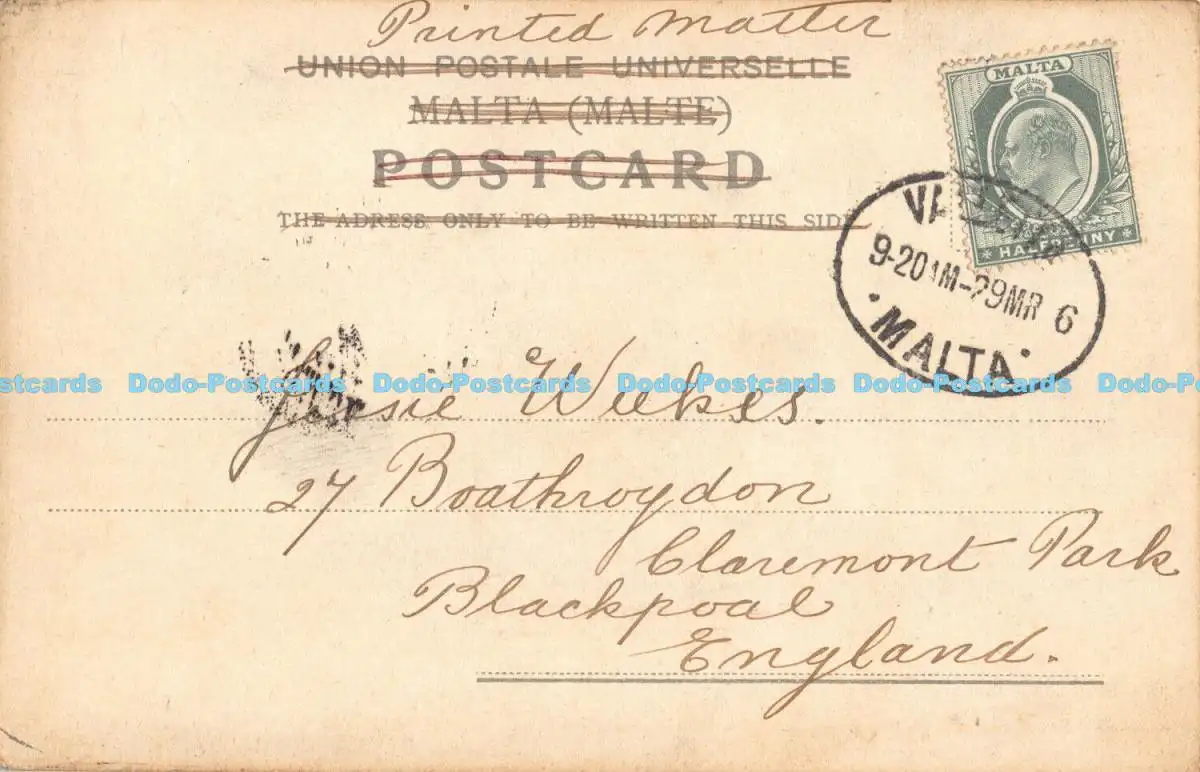 Printed Matter
UNION POSTALE UNIVERSELLE
MALTA (MALTE)
POSTCARD
THE ADRESS ONLY TO BE WRITTEN THIS SIDE
MALTA
HALFPENNY
VALLETTA
9-20AM-29MR 6
MALTA
Dodo-Postcards Dodo-Postcards Dodo-Postcards Dodo-Postcards Dodo-Postcards
Weekes.
27 Boathroydon
Claremont Park
Blackpoal
England.